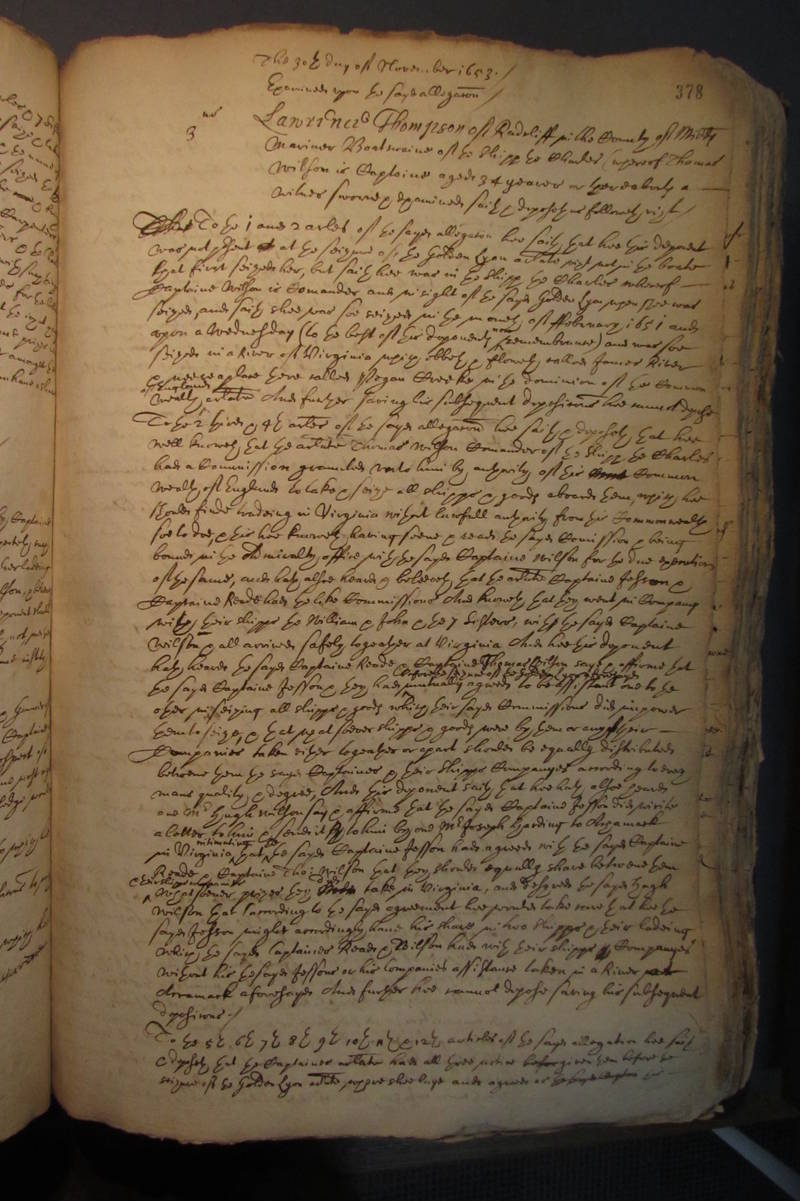 The 30th day of November 1653./
Examined upon the sayd allegacon/
378
3us
Lawrence Thompson of Radcliff in the County of Middx
Mariner Boatswaine of the shipp the Charles (whereof Thomas
Wilson is Captaine aged 34 yeares or thereabouts a
witnes sworne and examined saith and deposeth as followeth vizt/
To the 1 and 2 arles of the sayd allegacon hee saith that hee this deponent
was not present at the seizure of the Golden Lyon arlate not in the boate
that first seized her, but saith hee was in the shipp the Charles whereof
Captaine Wilson is Comander and in sight of the sayd Golden Lyon when shee was
seized, and saith shee was soe seized in the moneth of ffebruary 1651 and
upon a Wednesday (to the best of this deponents now remembrance) and was soe
seized in a River of Virginia which ebbeth and floweth called James River
and neere a place there called Pegan Creeke in the dominion of the Common
of England
wealth arlate And further saving his subsequent deposicons hee cannot depose
To the 3 and 4th arles of the sayd allegacon hee saith and deposeth that hee
well knoweth that the arlate Thomas Wilson Comander of the shipp the Charles
had a Commission graunted unto him by authority of this Common
wealth of England to take and seize all shipps and goods aboard them, which hee
should finde tradeing in Virginia without lawfull authority from this Commonwealth
soe to doe, and this hee knoweth having seene and read the sayd Comission and being
bound in the Admiralty office with the sayd Captaine Wilson for the due execution
of the same, and hath alsoe heard and beleeveth that the arlate Captaine Jefson and
Captaine Reade had the like Commissions And knoweth that they went in Company
with their shipps the William and John and the 7 Sisters, with the sayd Captaine
Wilson and all arrived safely togeather at Virginia And hee this deponent
hath heard the sayd Captaine Reade and Captaine Thomas Wilson say and affirme that
before the seizure of the
the sayd Captaine Jesson and they had mutually agreed to be assistant one to the
other in seizing all shipps and goods which their sayd Commissions did impower
them to seize, and that what soever shipps and goods were by them or any of their
Companies taken either togeather or apart should be equally distributed
betweene them the sayd Captaines and their shipps Companyes according to every
mans quality and degree, And this deponent saith that hee hath alsoe heard
one Mr Hugh Wilson say and affirme that the sayd Captaine Jesson did write
a letter to him and send it to him by one Mr Joseph Harding to
intimating
in Virginia that the sayd Captaine Jesson had agreed with the sayd Captaine
Reade and Captaine Tho: Wilson that they should equally share betweene them
and their shipps companies
what soever prizes they take in Virginia, and desyred the sayd Hugh
Wilson that according to the sayd agreement hee would take care that hee the
sayd Jesson might accordingly have his share in two shipps and their ladeing
which the sayd Captaines Reade and Wilson had with their shipps Companyes
without his the sayd Jessons or his Companies assistance taken in a River neere
aforesayd And further hee cannot depose saving his subsequent
deposicons./
To the 5th, 6th 7th 8th 9th 10th 11th and 12th articles of the sayd allegation hee saith
and deposeth that the Captaines arlate had all three notice given them before the
seizure of the Golden Lyon arlate and agreed